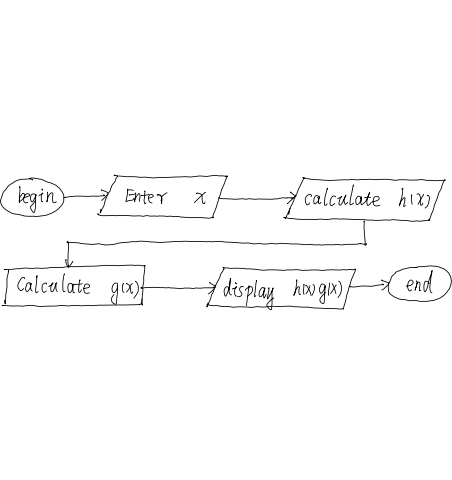 begin Enter x calculate h(x)
Calculate g(x) display h(x)g(x) end